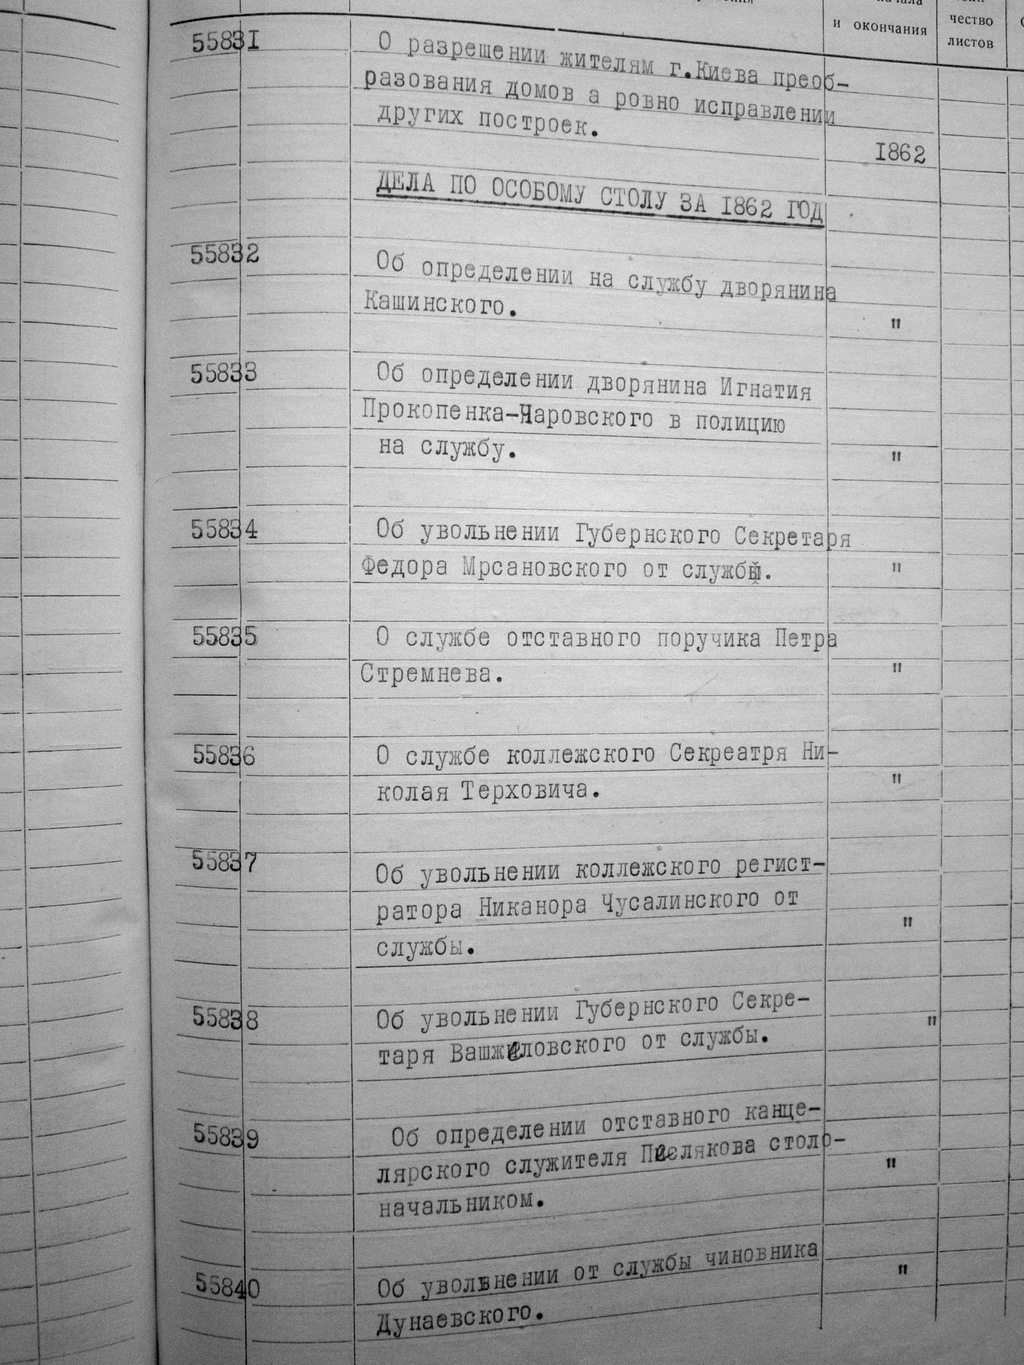 и окончания
чество
листов
55831 О разрешении жителям г.Киева преоб-
разования домов а ровно исправлении
других построек.
1862
ДЕЛА ПО ОСОБОМУ СТОЛУ ЗА 1862 ГОД
55832 Об определении на службу дворянина
Кашинского. "
55833 Об определении дворянина Игнатия
Прокопенка-Чаровского в полицию
на службу. "
55834 Об увольнении Губернского Секретаря
Федора Мрсановского от службы. "
55835 О службе отставного поручика Петра
Стремнева. "
55836 О службе коллежского Секреатря Ни-
колая Терховича. "
55837 Об увольнении коллежского регист-
ратора Никанора Чусалинского от "
службы.
55838 Об увольнении Губернского Секре- "
таря от службы.
55839 Об определении отставного канце-
лярского служителя столо- "
начальником.
55840 Об увольнении от службы чиновника "
Дунаевского.